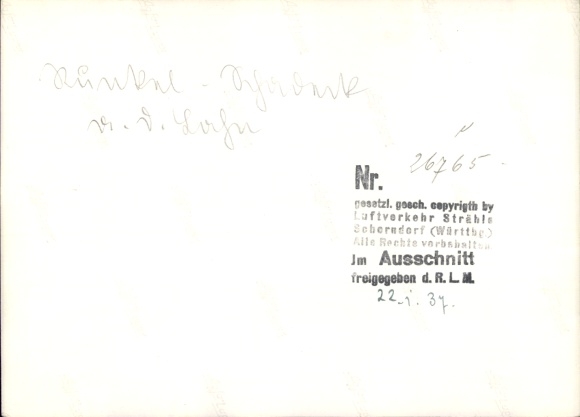 Runkel - Schadeck
a. d. Lahn
Nr. 26765
gesetzl. gesch. copyrigth by
Luftverkehr Strähle
Schorndorf (Württbg.)
Alle Rechte vorbehalten
Jm Ausschnitt
freigegeben d. R. L. M.
22.1.37.